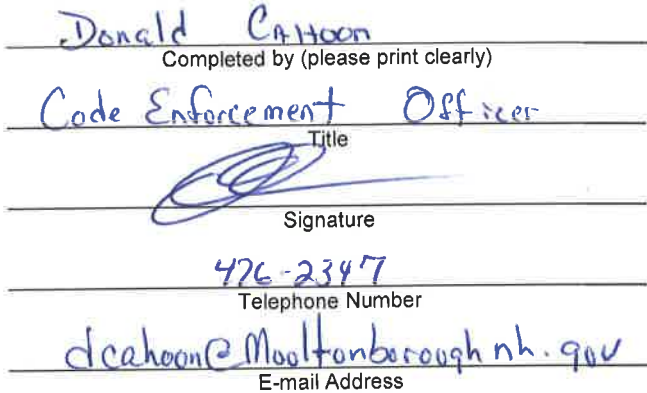 Donald CAHOON
Completed by (please print clearly)
Code Enforcement Officer
Title
Signature
476-2347
Telephone Number
dcahoon@Moultonboroughnh.gov
E-mail Address